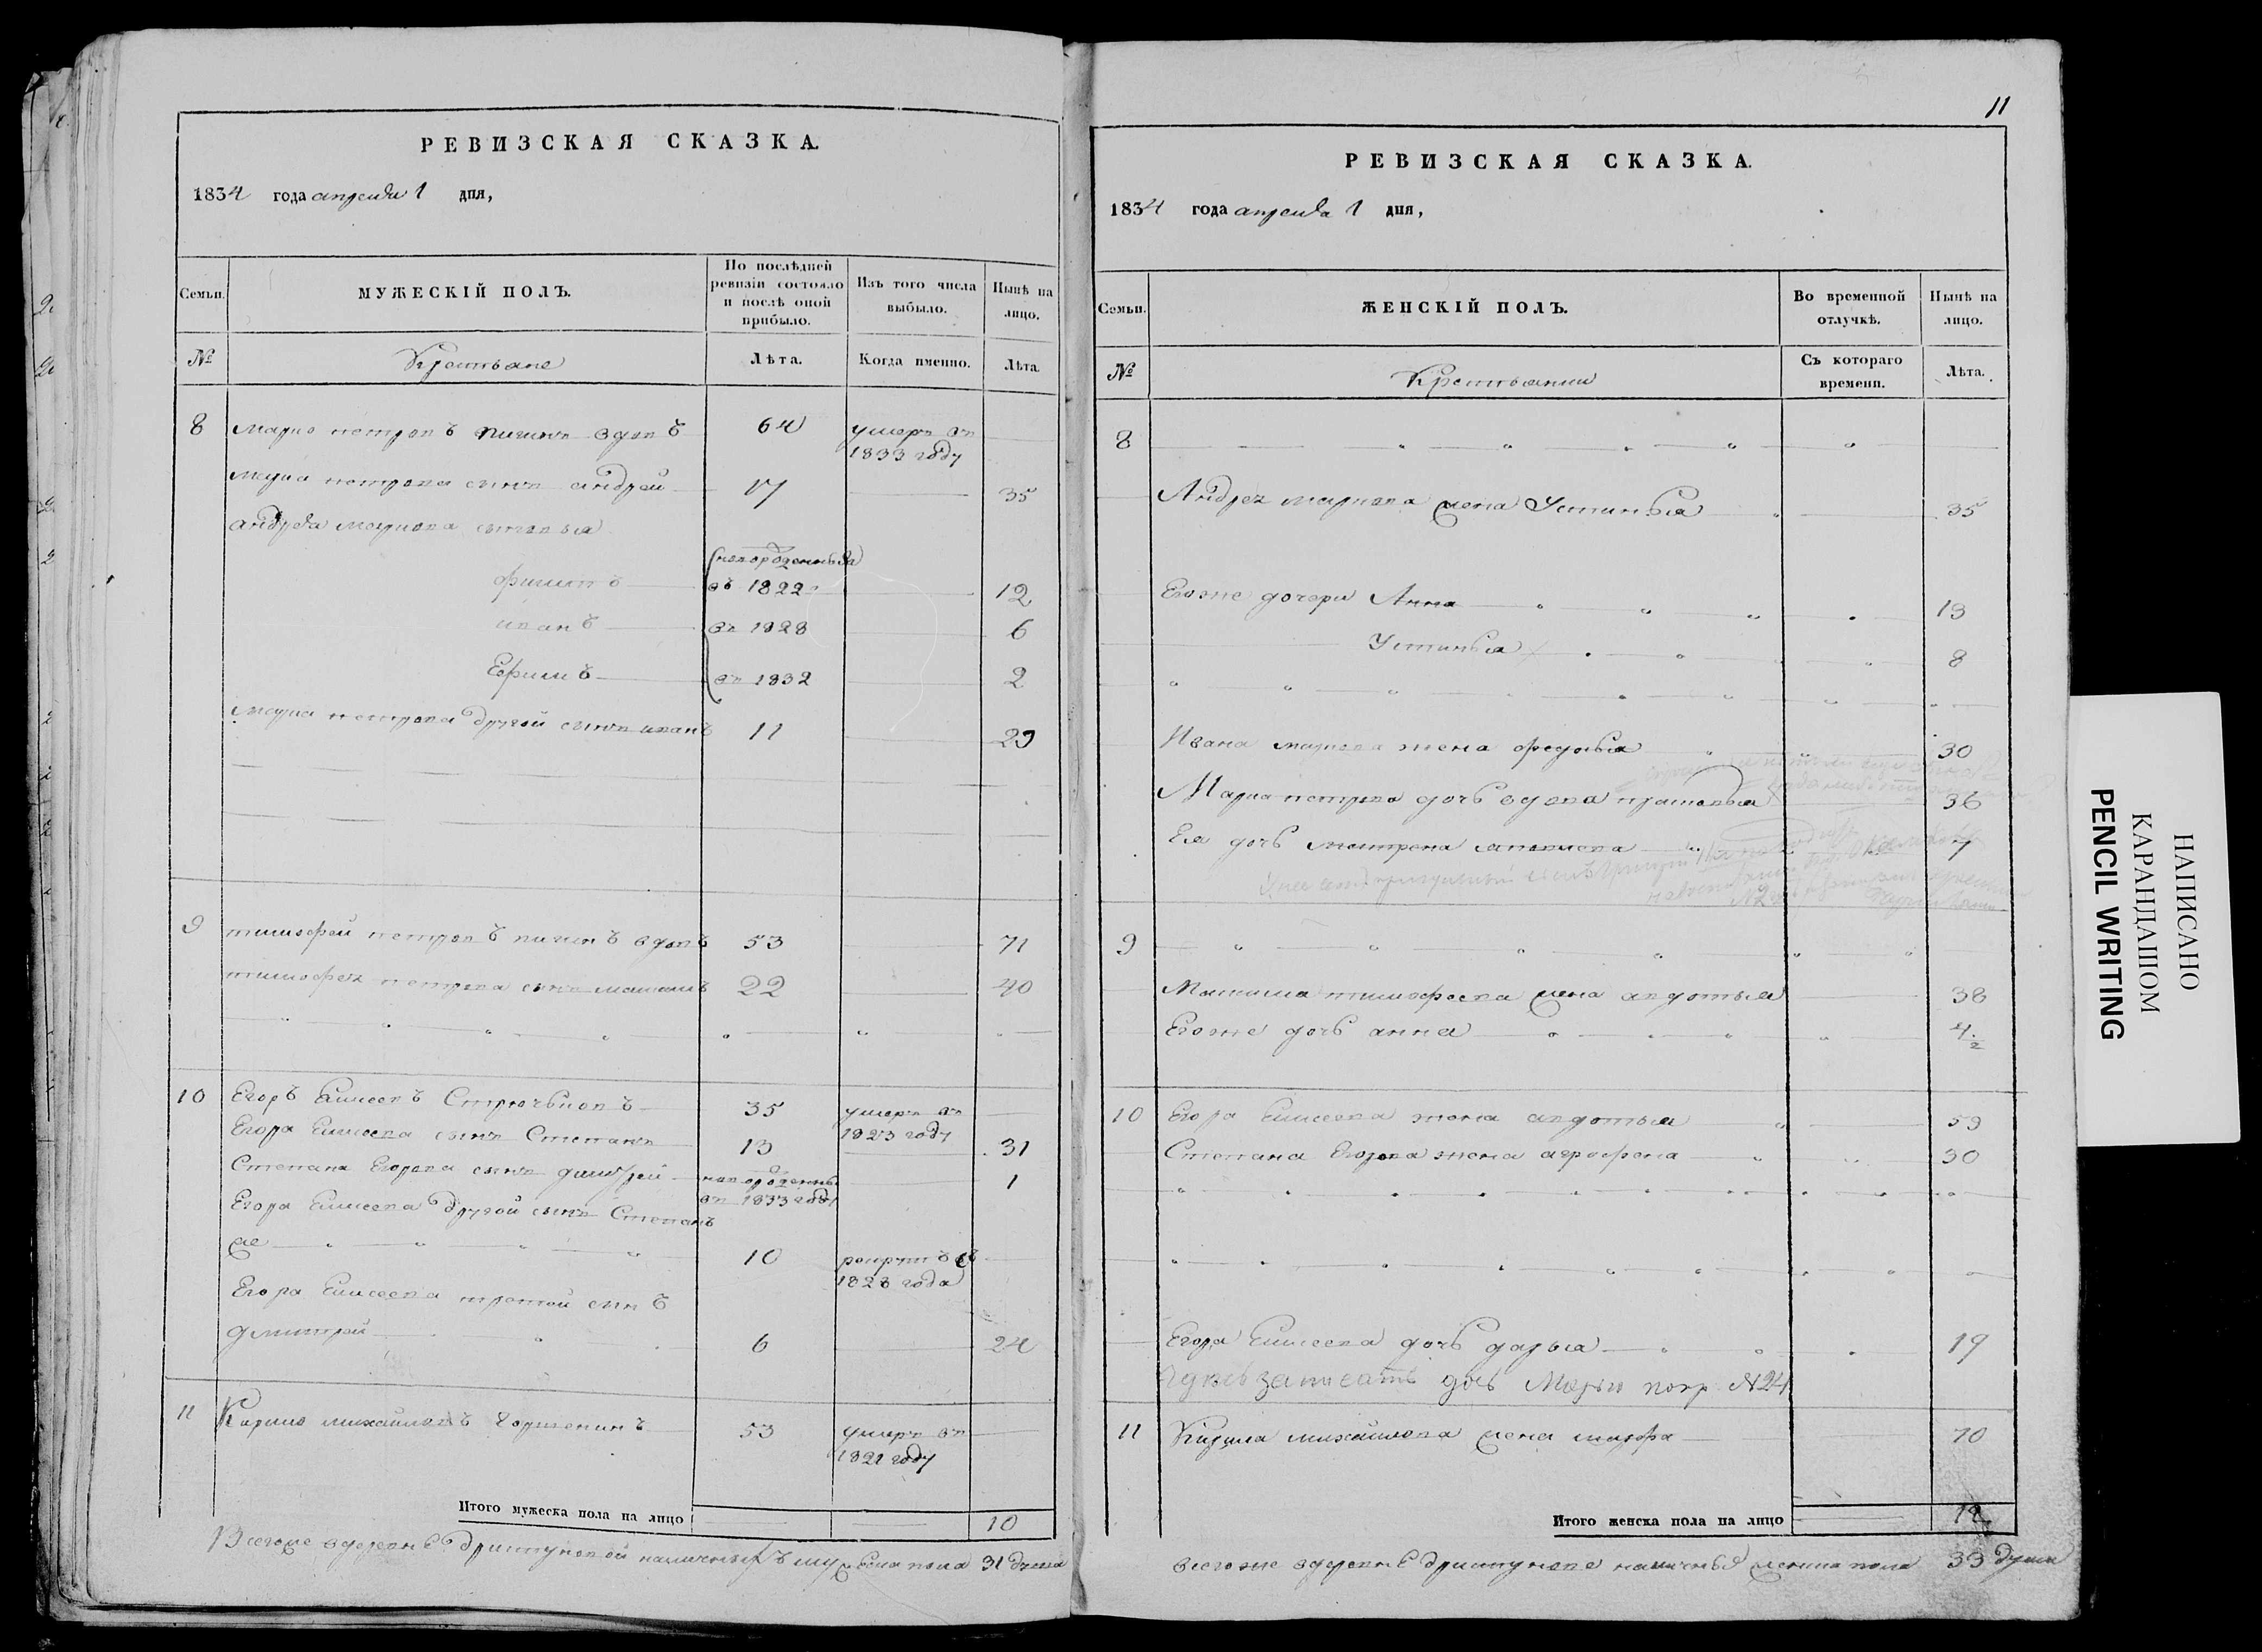 РЕВИЗСКАЯ СКАЗКА.
1834 года апреля 1 дня,
Семьи.
МУЖЕСКІЙ ПОЛЪ.
По послѣдней ревизіи состояло и послѣ оной прибыло.
Изъ того числа выбыло.
Нынѣ на лицо.
№
Крестьане
Лѣта.
Когда именно.
Лѣта.
8 марко петровъ пигинъ вдовъ 64 умеръ въ
1833 году
марка петрова сынъ андрей 17 35
андрея маркова сыновья
новорожденныя
филипъ въ 1822 12
иванъ въ 1828 6
Ефимъ въ 1832 2
марка петрова другой сынъ иванъ 11 29
9 тимофей петровъ пигинъ вдовъ 53 71
тимофея петрова сынъ максимъ 22 40
10 Егоръ Елисеевъ Стрючьковъ 35 умеръ въ
1823 году
Егора Елисеева сынъ Степанъ 13 31
Степана Егорова сынъ новорожденны 1
въ 1833 году
Егора Елисеева другой сынъ Степанъ
же 10 рекрутъ съ
1828 года
Егора Елисеева третей сынъ
дмитрей 6 24
11 Кирило михайловъ 53 умеръ въ
1821 году
Итого мужеска пола на лицо 10
Всегоже вдеревнѣ наличныхъ мужеска пола 31 душа
11
РЕВИЗСКАЯ СКАЗКА.
1834 года апреля 1 дня,
Семьи.
ЖЕНСКІЙ ПОЛЪ.
Во временной отлучкѣ.
Нынѣ на лицо.
№
Крестьянки
Съ котораго времени.
Лѣта.
8
Андрея маркова жена Устинья 35
Егоже дочери Анна 13
Устинья 8
Ивана маркова жена федосья 30
Марка петрова дочь вдова 36
Ея дочь матрена 7
9
Максима тимофеева жена авдотья 38
Егоже дочь анна 4 1/2
10 Егора Елисеева жена авдотья 59
Степана Егорова жена агрофена 30
Егора Елисеева дочь дарья 19
записать дочь №24
11 Кирила михайлова жена марфа 70
Итого женска пола на лицо 12
всегоже вдеревнѣ женска пола 33 души
НАПИСАНО
КАРАНДАШОМ
PENCIL WRITING